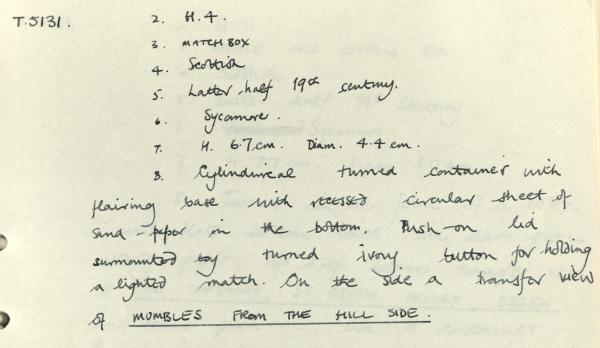 T.5131.
2. H.4.
3. MATCHBOX
4. Scottish
5. Latter-half 19th century.
6. Sycamore.
7. H. 6.7cm. Diam. 4.4 cm.
8. Cylindrical turned container with
flairing base with recessed circular sheet of
sand-paper in the bottom. Push-on lid
surmounted by turned ivory button for holding
a lighted match. On the side a transfer view
of MUMBLES FROM THE HILL SIDE.